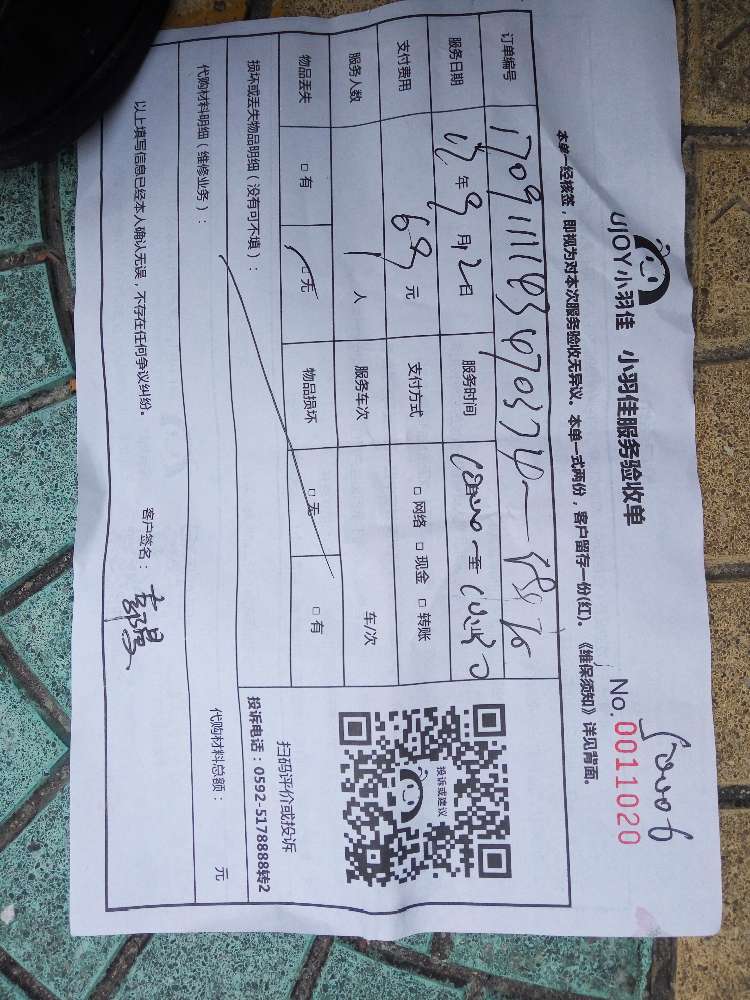 UJOY小羽佳 小羽佳服务验收单
No. 0011020
本单一经核签，即视为对本次服务验收无异议。本单一式两份，客户留存一份(红)。《维保须知》详见背面。
订单编号
服务日期 17年9月12日 服务时间 至
支付费用 69元 支付方式 □ 网络 □ 现金 □ 转账
服务人数 1人 服务车次 车/次
物品丢失 □ 有 □ 无 物品损坏 □ 无 □ 有
损坏或丢失物品明细（没有可不填）：
投诉或建议
扫码评价或投诉
投诉电话：0592-5178888转2
代购材料明细（维修业务）： 代购材料总额： 元
以上填写信息已经本人确认无误，不存在任何争议纠纷。 客户签名：